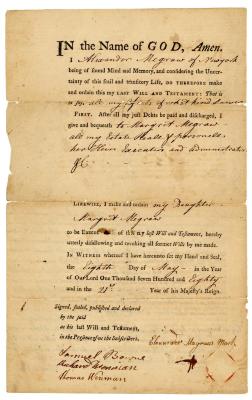 IN the Name of GOD, Amen.
I Alexander Megraw of Newyork
being of sound Mind and Memory, and considering the Uncer-
tainty of this frail and transitory Life, DO THEREFORE make
and ordain this my LAST WILL AND TESTAMENT: That is
to say, all my of what kind
FIRST. After all my just Debts be paid and discharged, I
give and bequeath to Margrit Megraw
all my Estate Reale & personall
her Heirs Executors and Administrators
&C.
LIKEWISE, I make and ordain my Daughter
Margrit Megraw
to be Execut of this my last Will and Testament, hereby
utterly disallowing and revoking all former Wills by me made.
IN WITNESS whereof I have hereunto set my Hand and Seal,
the Eighth Day of May in the Year
of Our Lord One Thousand Seven Hundred and Eighty
and in the 21st Year of his Majesty's Reign.
Signed, sealed, published and declared
by the said
as his last Will and Testament,
in the Presence of us the Subscribers.
Alexander Megraws Mark
Samuel Bowne
Richard
Thomas